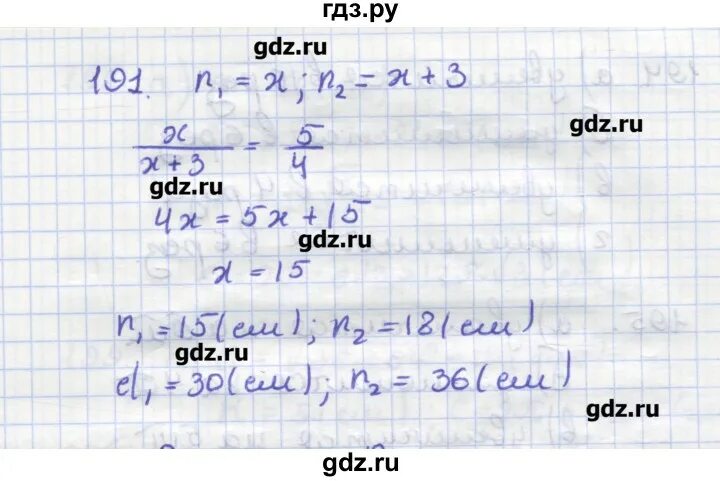 гдз.ру
gdz.ru
191. n₁ = x; n₂ = x + 3
gdz.ru
x/(x+3) = 5/4
gdz.ru
4x = 5x + 15
gdz.ru
x = 15
n₁ = 15(см); n₂ = 18(см)
gdz.ru
d₁ = 30(см); n₂ = 36(см)
gdz.ru
gdz.ru